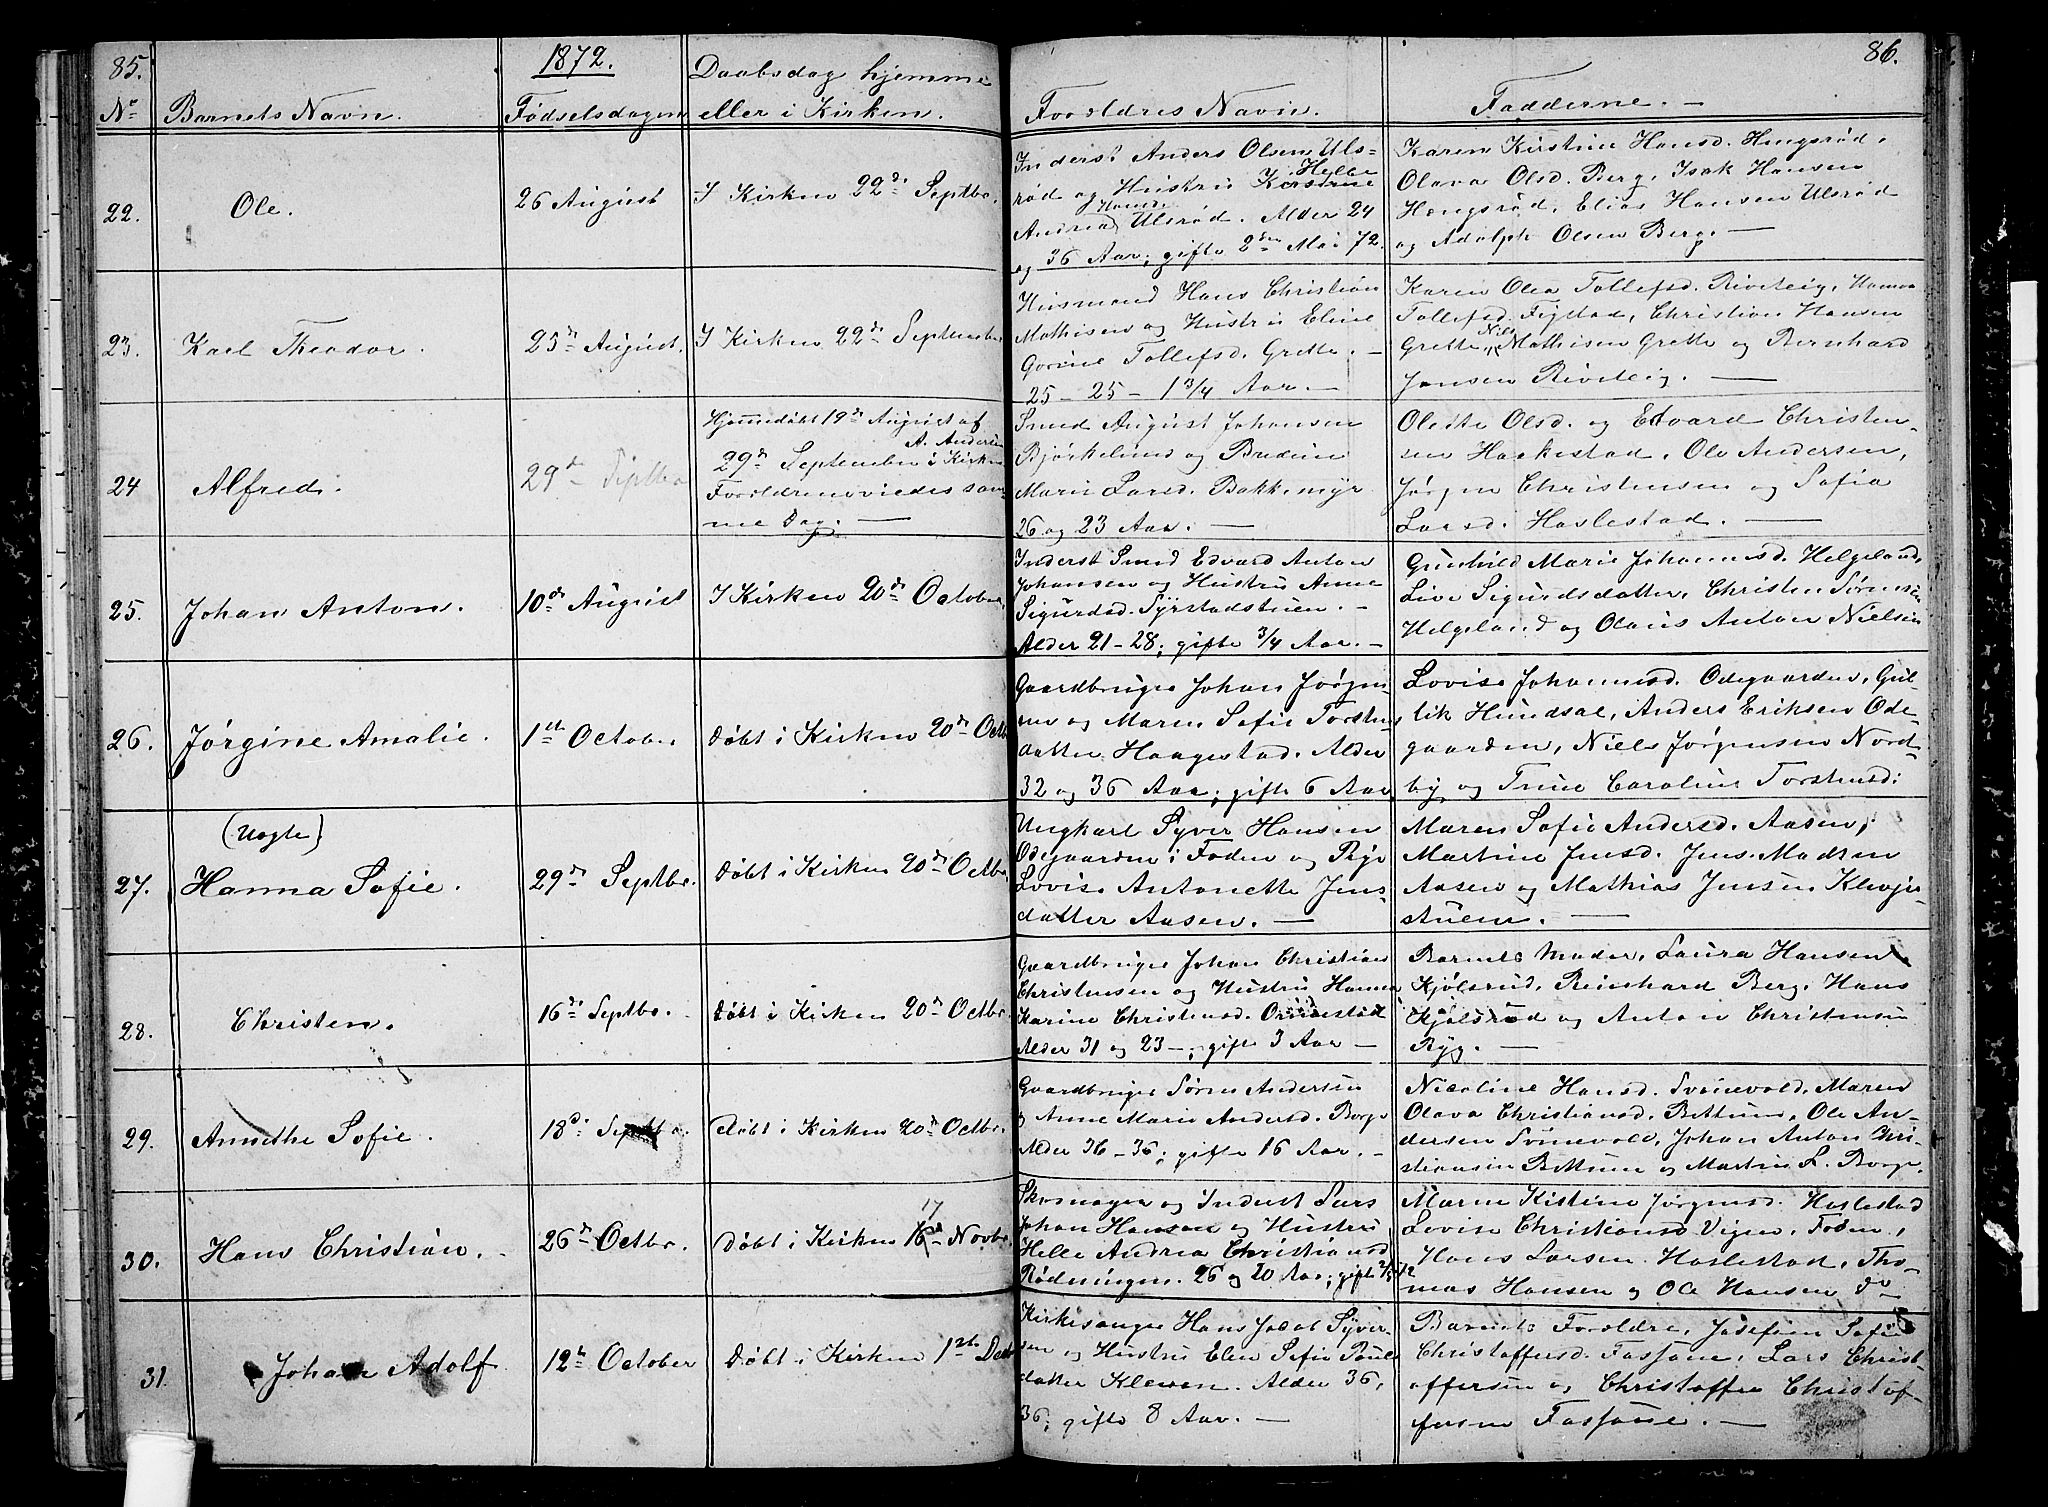 85.
1872.
86.
No
Barnets Navn.
Fødselsdagen
Daabsdag hjemme
eller i Kirken.
Forældres Navn.
Fadderne. —
22.
Ole.
26 August
I Kirken 22de Septbr.
Inderst Anders Olsen Uls-
Helle
rød og Hustru Kirstine
Hansd.
Andrea Ulsrød. Alder 24
og 36 Aar, gifte 2den Mai 72.
Karen Kirstine Hansd. Hengsrød,
Olava Olsd. Berg, Isak Hansen
Hengsrød, Elias Hansen Ulsrød
og Adolph Olsen Berg. —
23.
Karl Theodor.
23de August.
I Kirken 22de September
Husmand Hans Christian
Mathisen og Hustru Eline
Gorine Tollefsd. Grette. —
25 — 25 — 1 3/4 Aar. —
Karen Olea Tollefsd. Riveteig, Hanna
Tollefsd. Figstad, Christian Hansen
Grette, Niels Mathisen Grette og Bernhard
Jansen Riveteig. —
24
Alfred.
29de Septbr
Hjemmedøbt 19de August af
A. Andersen
29de September i Kirken
Forældrene viedes sam-
me Dag. —
Smed August Johansen
Bjørkelund og Budeie
Marie Larsd. Bakkemyr
26 og 23 Aar. —
Oledte Olsd. og Edvard Christen-
sen Haekestad, Ole Andersen,
Jørgen Christensen og Sofia
Larsd. Haslestad. —
25.
Johan Anton.
10de August
I Kirken 20de October.
Inderst Smed Edvard Anton
Johansen og Hustru Anne
Sigurdsd. Syrstadstuen. —
Alder 21 – 28; gifte 3/4 Aar. —
Gunhild Marie Johannesd. Helgeland,
Live Sigurdsdatter, Christen Sørensen
Helgeland og Olaus Anton Nielsen
26.
Jørgine Amalie.
1ste October.
Døbt i Kirken 20de Octb
Gaardbruger Johan Jørgen-
sen og Maren Sofie Torstens
datter Haagestad. Alder
32 og 36 Aar; gifte 6 Aar
Lovise Johannesd. Ødegaarden, Gul-
lik Hundsal, Anders Eriksen Øde-
gaarden, Niels Jørgensen Nord-
by og Trine Caroline Torstensd:
27.
(Uægte)
Hanna Sofie.
29de Septbr.
Døbt i Kirken 20de Octbr.
Ungkarl Syver Hansen
Ødegaarden i Foden og Pige
Lovise Antonette Jens
datter Aasen. —
Maren Sofie Andersd. Aasen,
Martine Jensd. Jens Madsen
Aasen og Mathias Jensen Klevje-
stuen. —
28.
Christen.
16de Septbr.
Døbt i Kirken 20de Octbr.
Gaardbruger Johan Christian
Christensen og Hustru Hanna
Karine Christensd.
Alder 31 og 23 —, gifte 3 Aar —
Barnets Moder, Laura Hansen
Kjølsrud, Reinhard Berg, Hans
Kjølsrød og Anton Christensen
Ryg. —
29.
Annethe Sofie.
18de Septbr.
Døbt i Kirken 20de Octbr.
Gaardbruger Søren Andersen
og Anne Marie Andersd. Borge
Alder 36 – 36; gifte 16 Aar. —
Nicoline Hansd. Svinevold, Maren
Olava Christiansd. Bettum, Ole An-
dersen Svinevold, Johan Anton Chri-
stiansen Bettum og Martin L. Borge.
30.
Hans Christian.
26de Octbr.
17
Døbt i Kirken 16de Novbr
Skomager og Inderst Lars
Johan Hansen og Hustru
Helle Andrea Christiansd
Rødningen. 26 og 20 Aar; gifte
Maren Kistine Jørgensd. Haslestad
Lovise Christiansd. Vigen, Foden,
Hans Larsen Haslestad, Tho-
mas Hansen og Ole Hansen do
31.
Johan Adolf
12te October
Døbt i Kirken 1ste Decbr
Kirkesanger Hans Jacob Syver-
sen og Hustru Elen Sofie Pauls
datter Kleven. Alder 36,
36; gifte 8 Aar. —
Barnets Forældre, Josefine Sofie
Christoffersd. Fossane, Lars Christ-
offersen og Christoffer Christof-
fersen Fossane. —